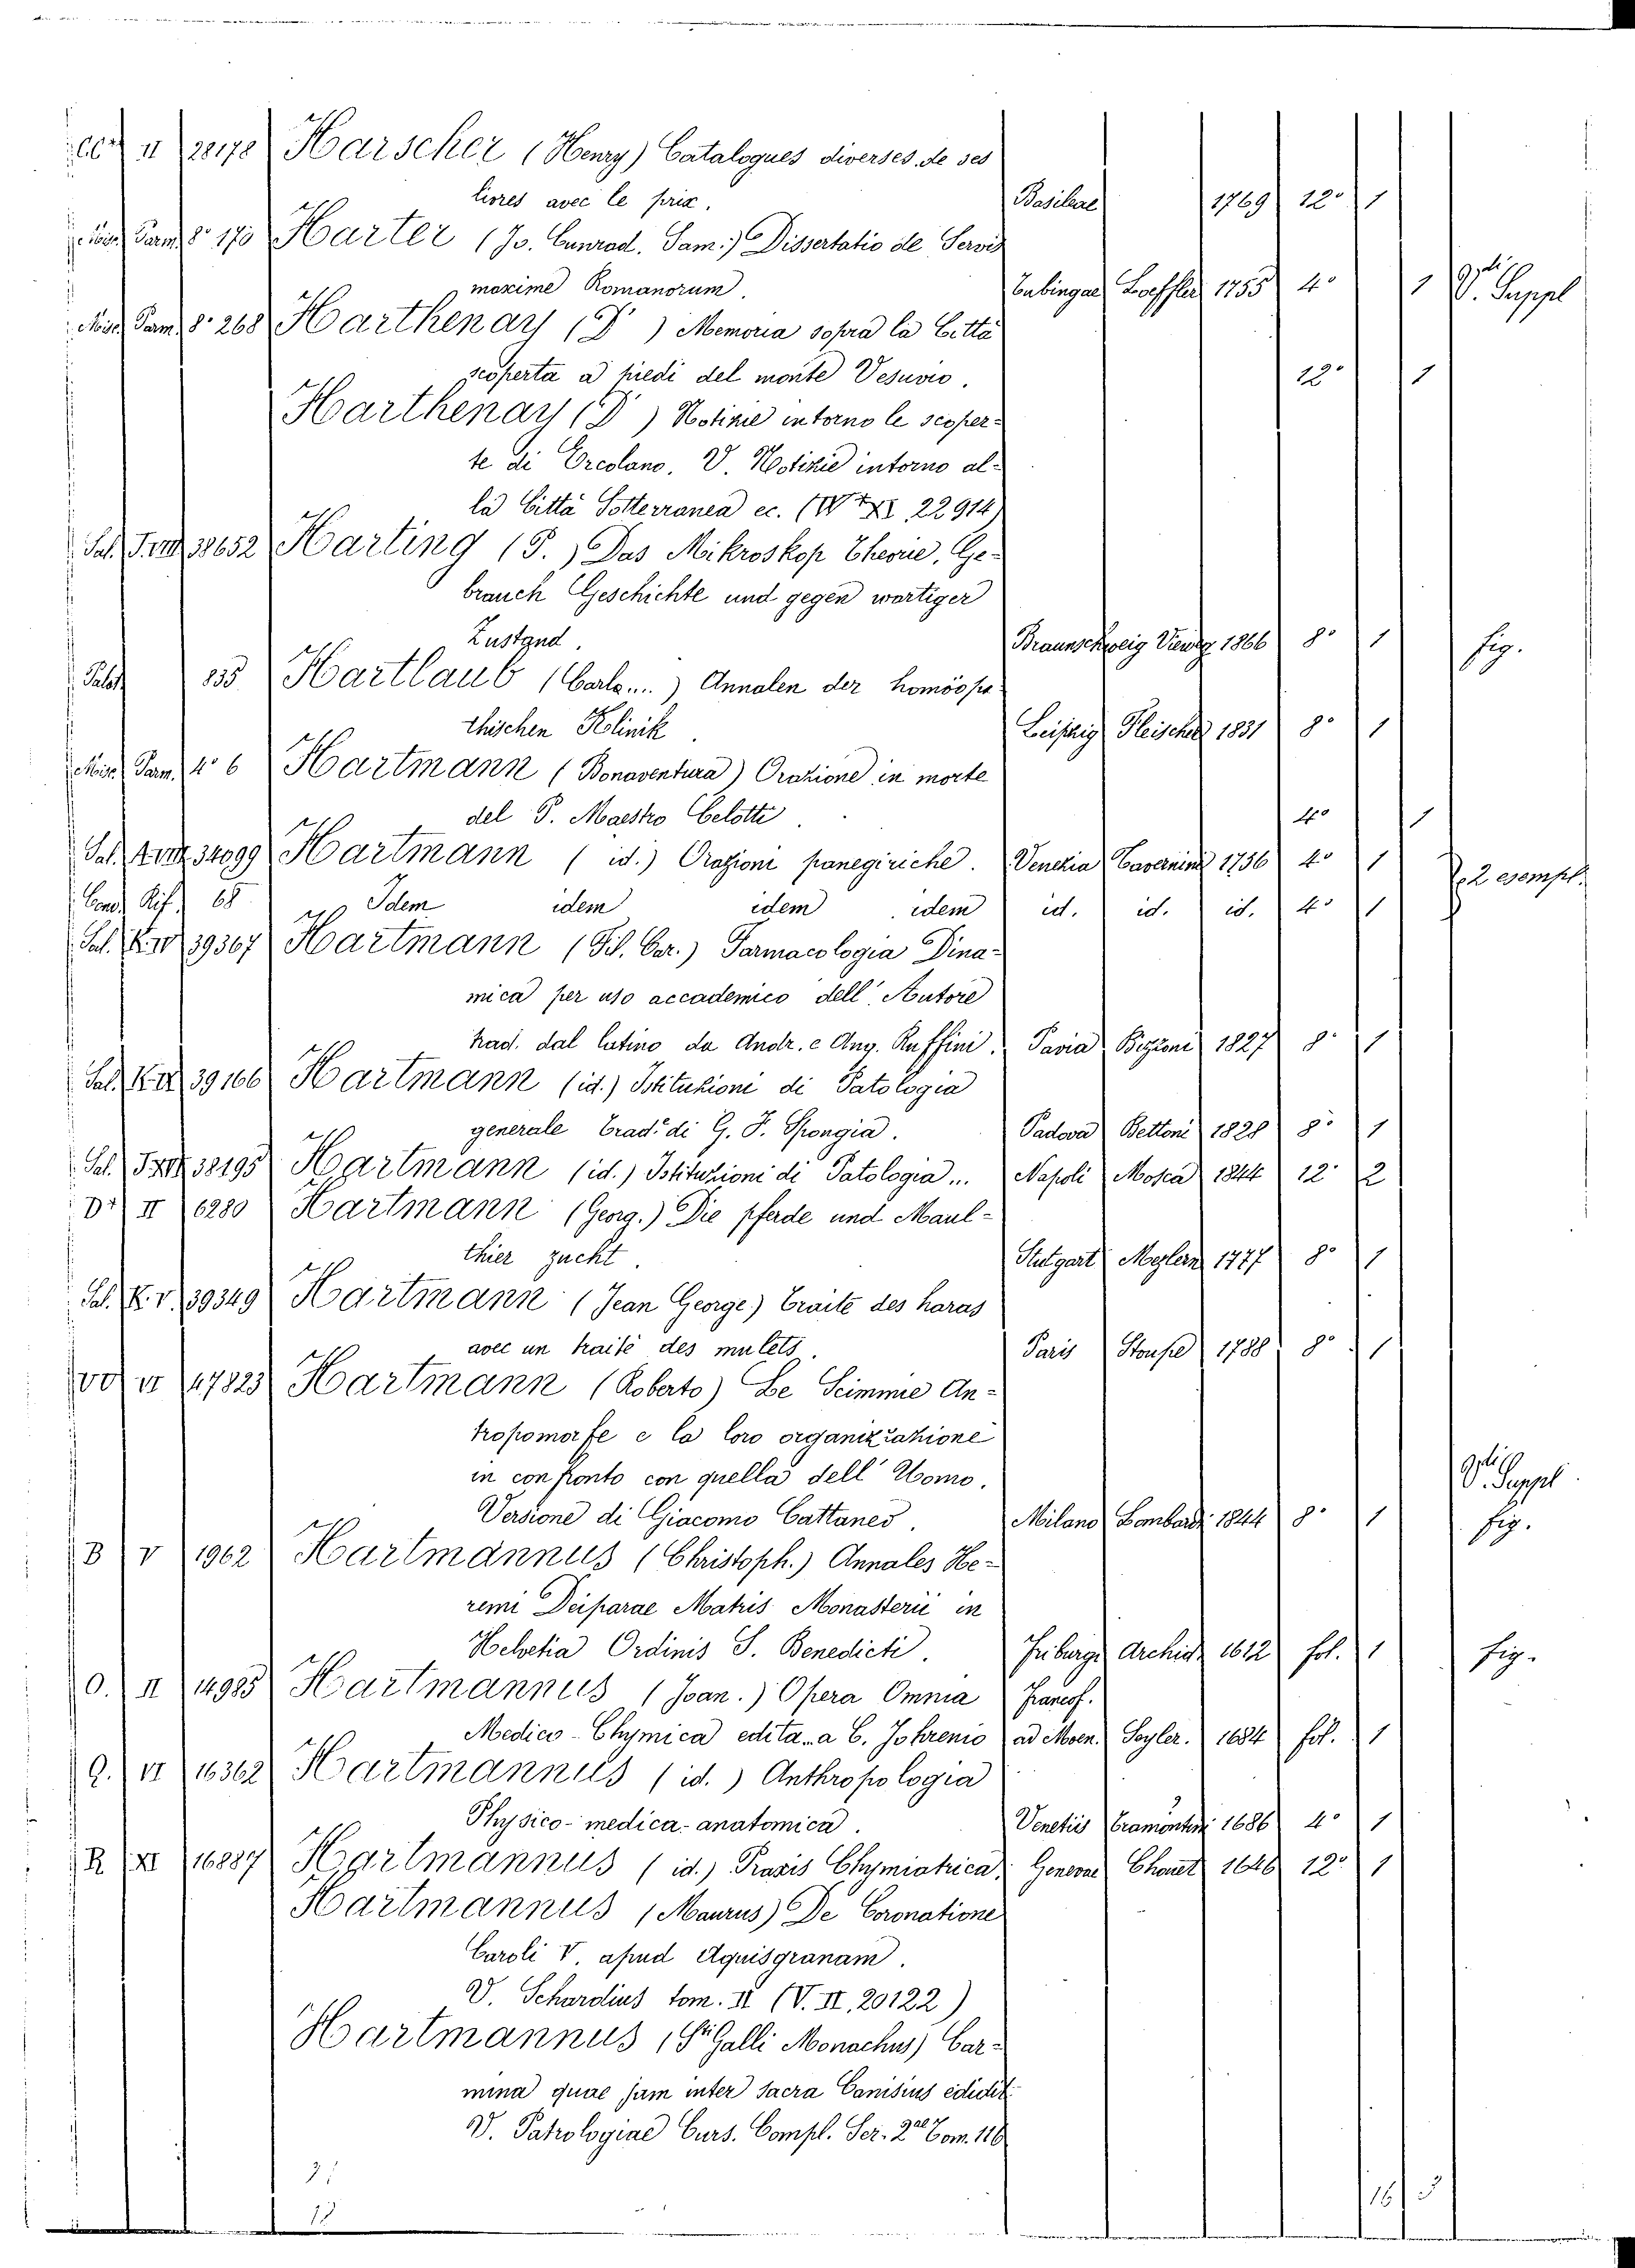 CC² II 28178 Harscher (Henry) Catalogues diverses de ses
livres avec le prix. Basileae 1769 12° 1
Misc. Parm. 8° 170 Harter (Jo. Cunrad. Sam.) Dissertatio de Servis
maxime Romanorum. Tubingae Loeffler 1755 4° 1 V. Suppl
Misc. Parm. 8° 268 Harthenay (D ) Memoria sopra la Città
scoperta a piedi del monte Vesuvio. 12° 1
Harthenay (D ) Notizie intorno le scoper-
te di Ercolano. V. Notizie intorno al-
la Città Sotterranea ec. ( 22914)
Sal. 38652 Harting (P.) Das Mikroskop Theorie, Ge-
brauch Geschichte und gegen wärtiger
Zustand. Braunschweig Vieweg 1866 8° 1 fig.
Palat 835 Hartlaub (Carlo...) Annalen der homöopa
thischen Klinik. Leipzig Fleischer 1831 8° 1
Misc. Parm. 4° 6 Hartmann (Bonaventura) Orazione in morte
del P. Maestro Belotti. 4° 1
Sal. 34099 Hartmann (id.) Orazioni panegiriche. Venezia Tavernini 1736 4° 1 2 esempl.
Cond. Rif. 68 Idem idem idem idem id. id. id. 4° 1
Sal. 39367 Hartmann (Fil. Car.) Farmacologia Dina-
mica per uso accademico dell'Autore
trad. dal latino da Andr. e Ang. Ruffini. Pavia Bizzoni 1827 8° 1
Sal. 39166 Hartmann (id.) Istituzioni di Patologia
generale trad. di G. F. Spongia. Padova Bettoni 1828 8° 1
Sal. 38195 Hartmann (id.) Istituzioni di Patologia... Napoli Mosca 1844 12° 2
D² II 6280 Hartmann (Georg.) Die pferde und Maul-
thier zucht. Stutgart Mezlern 1777 8° 1
Sal. K. V. 39349 Hartmann (Jean George) Traité des haras
avec un traité des mulets. Paris Stoupe 1788 8° 1
VI 47823 Hartmann (Roberto) Le Scimmie An-
tropomorfe e la loro organizzazione
in confronto con quella dell'Uomo.
Versione di Giacomo Cattaneo. Milano Lombardi 1844 8° 1 V. Suppl fig.
B V 1962 Hartmannus (Christoph.) Annales He-
remi Deiparae Matris Monasterii in
Helvetia Ordinis S. Benedicti. Friburgi Archid. 1612 fol. 1 fig.
O. II 14985 Hartmannus (Joan.) Opera Omnia Francof.
Medico-Chymica edita a C. Johrenio ad Moen. Seyler. 1684 fol. 1
Q. VI 16362 Hartmannus (id.) Anthropologia
Physico-medica-anatomica. Venetiis Tramontini 1686 4° 1
R XI 16887 Hartmannus (id.) Praxis Chymiatrica. Genevae Chouet 1646 12° 1
Hartmannus (Maurus) De Coronatione
Caroli V. apud Aquisgranam.
V. Schardius tom. II (V. II. 20122)
Hartmannus (S.ti Galli Monachus) Car-
mina quae jam inter sacra Canisius edidit
V. Patrologiae Curs. Compl. Ser. 2ae Tom. 116